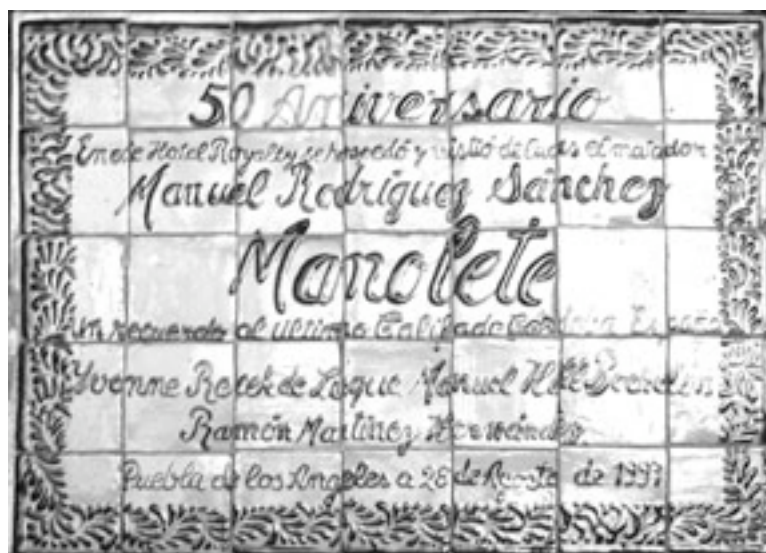 50 Aniversario
En este Hotel Royalty se hospedó y vistió de luces el matador
Manuel Rodríguez Sánchez
Manolete
Un recuerdo al ultimo Califa de Cordoba España
Yvonne Recek de Luque Manuel
Ramón Martínez Hernández
Puebla de los Angeles a 28 de Agosto de 1997